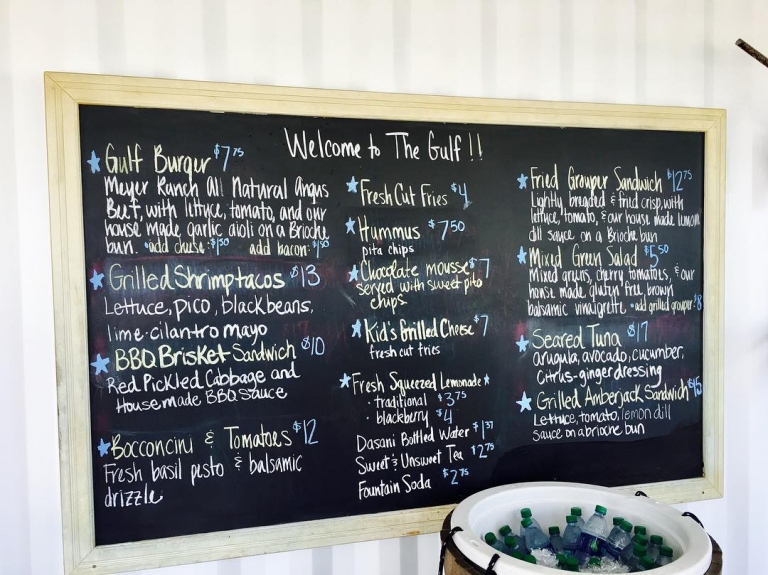 Welcome to The Gulf!!
Gulf Burger $7.75
Meyer Ranch All Natural Angus
Beef, with lettuce, tomato, and our
house made garlic aioli on a Brioche
bun. • add cheese: $1.50 add bacon: $1.50
Grilled Shrimp tacos $13
Lettuce, pico, black beans,
lime-cilantro mayo
BBQ Brisket Sandwich $10
Red Pickled Cabbage and
House made BBQ sauce
Bocconcini & Tomatoes $12
Fresh basil pesto & balsamic
drizzle
Fresh Cut Fries $4
Hummus $7.50
pita chips
Chocolate mousse $7
served with sweet pita
chips
Kid's Grilled Cheese $7
fresh cut fries
Fresh Squeezed Lemonade
• traditional $3.75
• blackberry $4
Dasani Bottled Water $1.37
Sweet & Unsweet Tea $2.75
Fountain Soda $2.75
Fried Grouper Sandwich $12.75
Lightly breaded & fried crisp, with
lettuce, tomato, & our house made lemon
dill sauce on a Brioche bun
Mixed Green Salad $5.50
Mixed greens, cherry tomatoes, & our
house made, gluten free brown
balsamic vinaigrette • add grilled grouper $8
Seared Tuna $17
arugula, avocado, cucumber,
citrus-ginger dressing
Grilled Amberjack Sandwich $15
Lettuce, tomato, lemon dill
sauce on a brioche bun